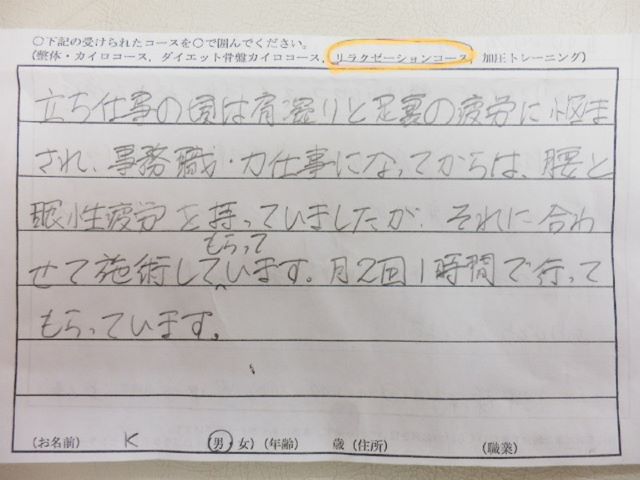 ○下記の受けられたコースを○で囲んでください。
(整体・カイロコース、ダイエット骨盤カイロコース、リラクゼーションコース、加圧トレーニング)
立ち仕事の頃は肩凝りと足裏の疲労に悩ま
され、事務職・力仕事になってからは、腰と
眼性疲労を持っていましたが、それに合わ
もらって
せて施術しています。月2回1時間で行って
もらっています。
(お名前) K (男・女) (年齢) 歳 (住所) (職業)